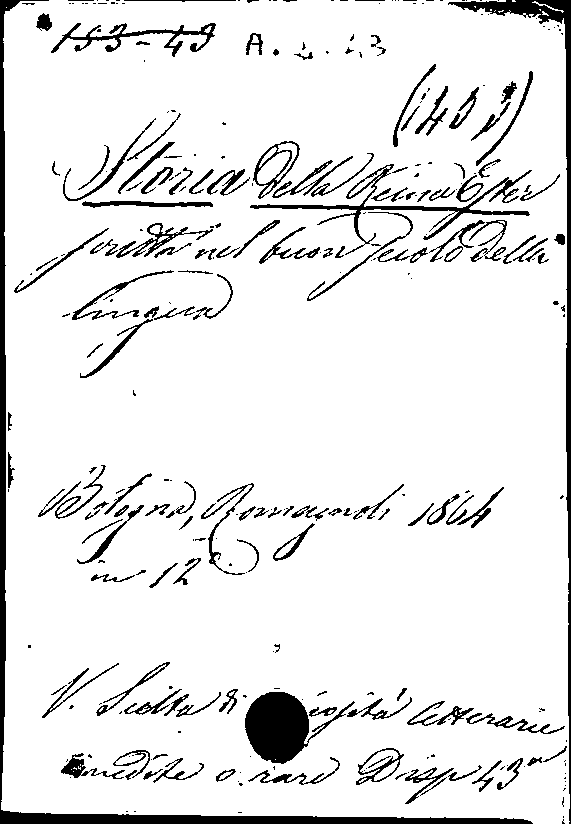 153-43 A. 4. 43
(1433)
Storia della Reina Ester
scritta nel buon secolo della
lingua
Bologna, Romagnoli 1864
in 12º.
V. Scelta di iosità letterarie
inedite o rare Disp 43ª